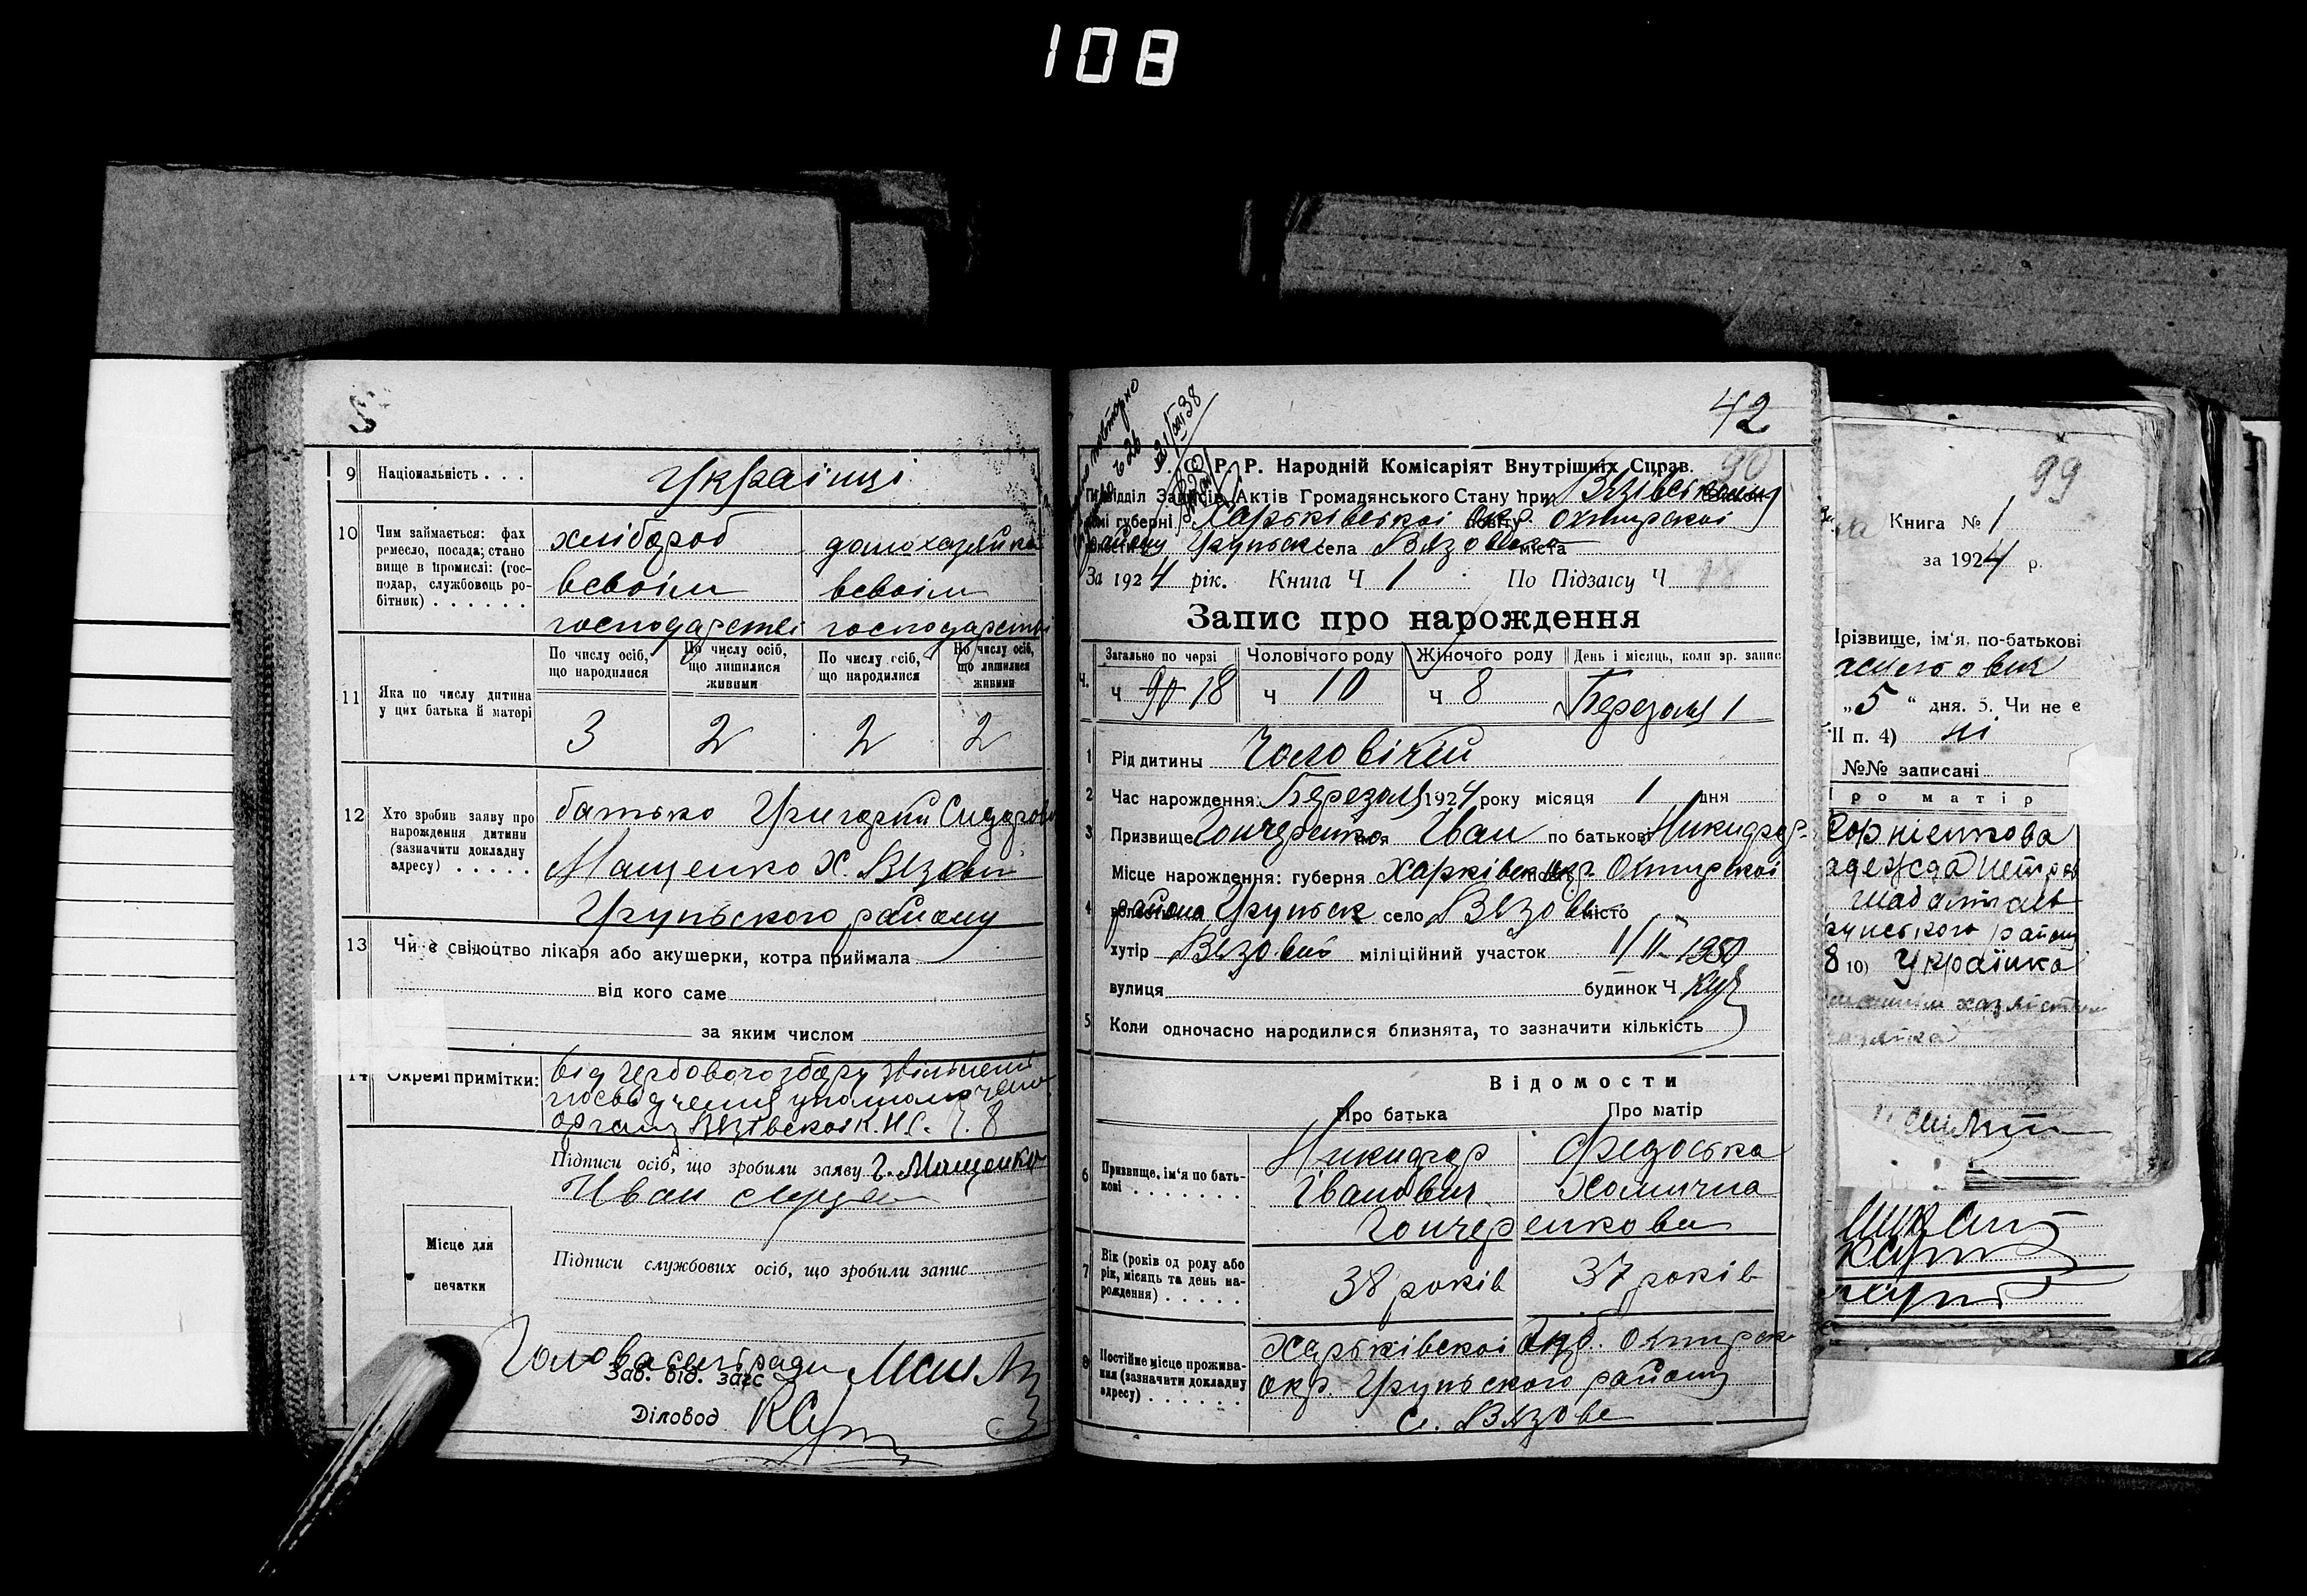 108
9 Національність . . . Украінці
10 Чим займається: фах ремесло, посада; становище в промислі: (господар, службовець робітник) . . . . . .
хлібороб домохазяйка
всвоім всвоім
господарстві господарстві
11 Яка по числу дитина у цих батька й матері
По числу осіб, що народилися
По числу осіб, що лишилися живими
По числу осіб, що народилися
По числу осіб, що лишилися живими
3 2 2 2
12 Хто зробив заяву про нарождення дитини (зазначити докладну адресу) . . . . .
батько Григорій Сидорови
Мащенко Х. Вязовий
Грунського району
13 Чи є свідоцтво лікаря або акушерки, котра приймала
від кого саме
за яким числом
14 Окремі примітки: Від гербового збору звільнені
посвідчення уполномочено
орган Вязівскоі К.Н.С. Ч. 8
Підписи осіб, що зробили заяву Г. Мащенко
Иван
Місце для печатки
Підписи службових осіб, що зробили запис
Голова сельради
Зав. від. загс
Діловод
42
повторно
№ 26
21/XII 38
С. Р. Р. Народній Комісаріят Внутрішніх Справ. 90
Підвідділ Записів Актів Громадянського Стану при Вязівськом
губерні Харьківськоі повіту окр. Охтирскоі
району Груньск села Вязове міста
За 1924 рік. Книга Ч 1 По Підзагсу Ч
Запис про нарождення
Загально по черзі Чоловічого роду Жіночого роду День і місяць, коли зр. запис
Ч 90 18 Ч 10 Ч 8 Березоля 1
1 Рід дитины Чоловічий
2 Час нарождення: Березоля 1924 року місяця 1 дня
3 Призвище Гончеренко імя Іван по батькові Никифор
Місце нарождення: губерня Харківск окр. Охтирскоі
4 района Груньск село Вязове місто
хутір Вязовий міліційний участок 1/II 1950
вулиця будинок Ч
5 Коли одночасно народилися близнята, то зазначити кількість
Відомости
Про батька Про матір
6 Призвище, ім'я по батькові . . . . . . .
Никифор Федоська
Іванович Хомична
Гончеренкова
7 Вік (років од роду або рік, місяць та день нарождення) . . . . .
38 років 37 років
8 Постійне місце проживання (зазначити докладну адресу) . . . . . .
Харьківскоі губ. Охтирск
окр. Груньского району
с. Вязове
99
Книга № 1
за 1924 р.
Прізвище, ім'я, по-батькові
„5“ дня. 5. Чи не є
II п. 4) ні
№№ записані
ро матір
Корніенкова
району
8 10) Украінка